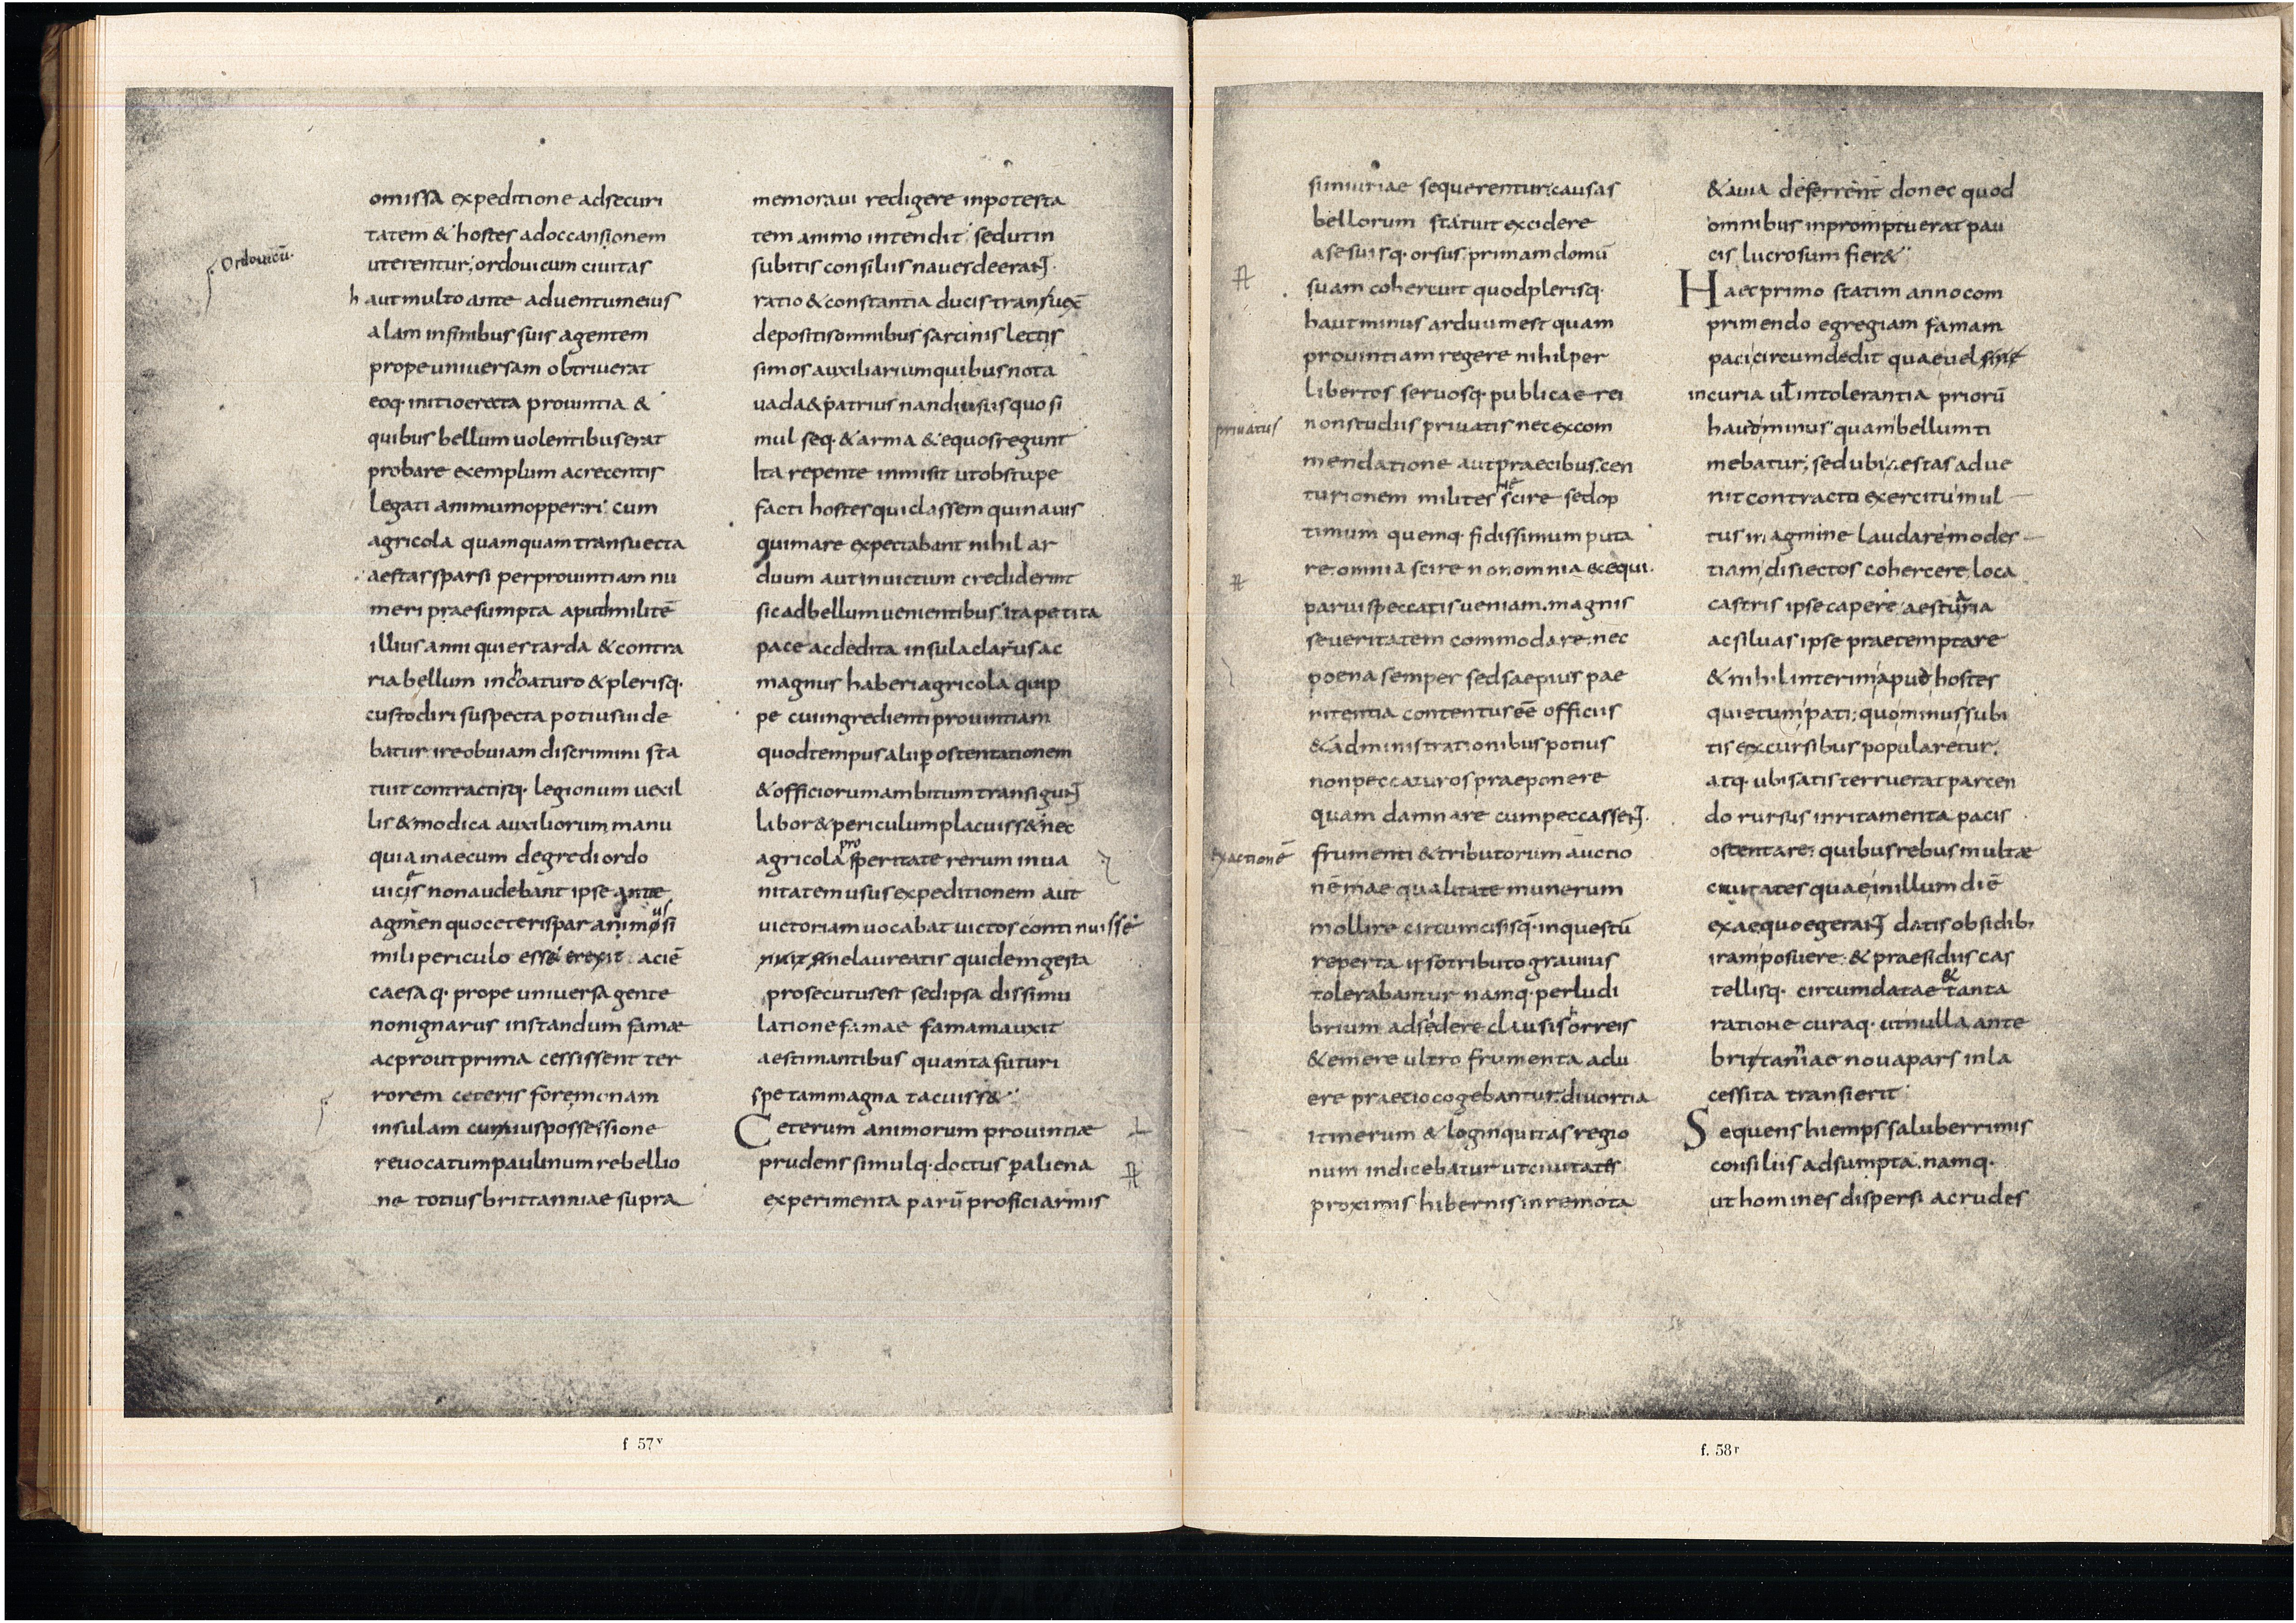 omissa expeditione adsecuri
tatem & hostes adoccansionem
Ordouicū.
uterentur; ordouicum ciuitas
haut multo ante aduentum eius
alam infinibus suis agentem
prope uniuersam obtriuerat
eoq· initio erecta prouintia &
quibus bellum uolentibus erat
probare exemplum ac recentis
legati animum opperiri cum
agricola quamquam transuecta
aestas sparsi per prouintiam nu
meri praesumpta apud militē
illius anni quies tarda & contra
ria bellum inchoaturo & plerisq·
custodiri suspecta potius uide
batur ire obuiam discrimini sta
tuit contractisq· legionum uexil
lis & modica auxiliorum manu
quia in aecum degredi ordo
uices non audebant ipse ante
agmen quo ceteris par animus si
mili periculo esse& erexit aciē
caesaq· prope uniuersa gente
non ignarus instandum famæ
ac prout prima cessissent ter
rorem ceteris fore monam
insulam cuius possessione
reuocatum paulinum rebellio
ne totius brittanniae supra
memoraui redigere in potesta
tem animo intendit; sed ut in
subitis consiliis naues deerant·
ratio & constantia ducis transuex̄
depositis omnibus sarcinis lectis
simos auxiliarium quibus nota
uada & patrius nandi usus quo si
mul seq· & arma & equos regunt
Ita repente inmisit ut obstupe
facti hostes qui classem qui nauis
qui mare expectabant nihil ar
duum aut inuictum crediderint
sic ad bellum uenientibus ita petita
pace ac dedita insula clarus ac
magnus haberi agricola quip
pe cui ingredienti prouintiam
quod tempus alii ꝑ ostentationem
& officiorum ambitum transigunt
labor & periculum placuiss& nec
agricola prosperitate rerum in ua
nitatem usus expeditionem aut
uictoriam uocabat uictos continuisse
nuit sine laureatis quidem gesta
prosecutus est sed ipsa dissimu
latione famae famam auxit
aestimantibus quanta futuri
spe tam magna tacuiss&
Ceterum animorum prouintiæ
prudens simulq· doctus ꝑ aliena
experimenta parū profici armis
si iniuriae sequerentur: causas
bellorum statuit excidere
a se suisq· orsus primam domū
suam cohercuit quod plerisq·
haut minus arduum est quam
prouintiam regere nihil per
libertos seruosq· publicae rei
priuatus
non studiis priuatis nec ex com
mendatione aut praecibus cen
turionem milites scire sed op
timum quemq· fidissimum puta
re. omnia scire non omnia exequi.
paruis peccatis ueniam. magnis
seueritatem commodare. nec
poena semper sed saepius pae
nitentia contentus eē officiis
& administrationibus potius
non peccaturos praeponere
quam damnare cum peccassent·
exactionē
frumenti & tributorum auctio
nē mae qualitate munerum
mollire circumcisisq· in questū
reperta ipso tributo grauius
tolerabantur namq· per ludi
brium adsedere clausis horreis
& emere ultro frumenta adu
ere praetio cogebantur. diuortia
itinerum & loginquitas regio
num indicebatur ut ciuitates
proximis hibernis in remota
& auia deferrent donec quod
omnibus in promptu erat pau
cis lucrosum fier&
Haec primo statim anno com
primendo egregiam famam
paci circumdedit quae uel sine
incuria ul̄ intolerantia priorū
haud minus quam bellum ti
mebatur; sed ubi aestas adue
nit contracto exercitu mul
tus in agmine laudare modes
tiam disiectos cohercere. loca
castris ipse capere aestuaria
ac siluas ipse praetemptare
& nihil interim apud hostes
quietum pati; quominus subi
tis excursibus popularetur.
atq· ubi satis terruerat parcen
do rursus inritamenta pacis
ostentare; quibus rebus multæ
ciuitates quae in illum diē
ex aequo egerant datis obsidib;
iram posuere. & praesidiis cas
tellisq· circumdatae & tanta
ratione curaq· ut nulla ante
brittanniae noua pars inla
cessita transierit
Sequens hiemps saluberrimis
consiliis adsumpta. namq·
ut homines dispersi ac rudes
f 57ᵛ
f. 58ʳ